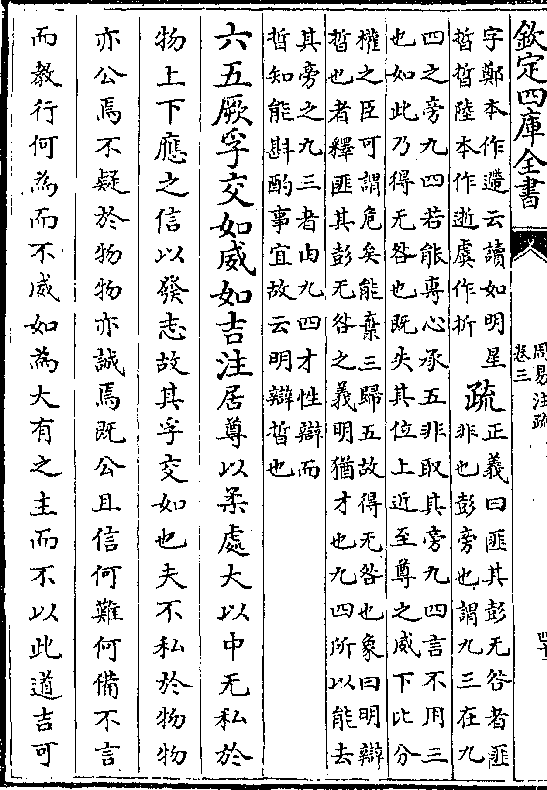 欽定四庫全書
周易注疏
卷三
字鄭本作遰云讀如明星
晢晢陸本作逝虞作折
疏
正義曰匪其彭无咎者匪
非也彭旁也謂九三在九
四之旁九四若能專心承五非取其旁九四言不用三
也如此乃得无咎也既失其位上近至尊之威下比分
權之臣可謂危矣能棄三歸五故得无咎也象曰明辯
晢也者釋匪其彭无咎之義明猶才也九四所以能去
其旁之九三者由九四才性辯而
晢知能斟酌事宜故云明辯晢也
六五厥孚交如威如吉注居尊以柔處大以中无私於
物上下應之信以發志故其孚交如也夫不私於物物
亦公焉不疑於物物亦誠焉既公且信何難何備不言
而教行何為而不威如為大有之主而不以此道吉可